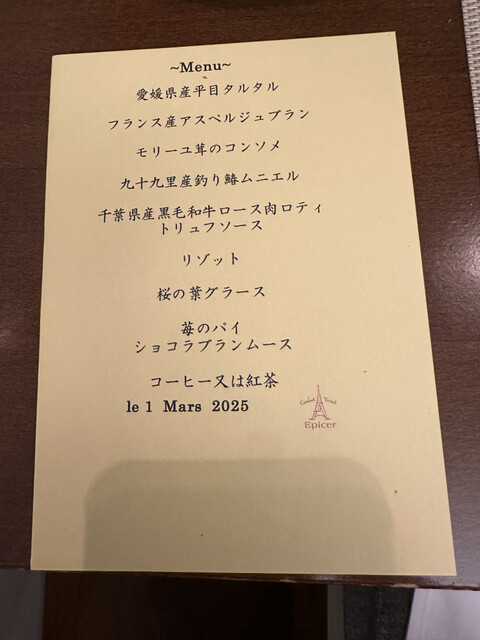 ~Menu~
愛媛県産平目タルタル
フランス産アスペルジュブラン
モリーユ茸のコンソメ
九十九里産釣り鰆ムニエル
千葉県産黒毛和牛ロース肉ロティ
トリュフソース
リゾット
桜の葉グラース
苺のパイ
ショコラブランムース
コーヒー又は紅茶
le 1 Mars 2025
Epicer